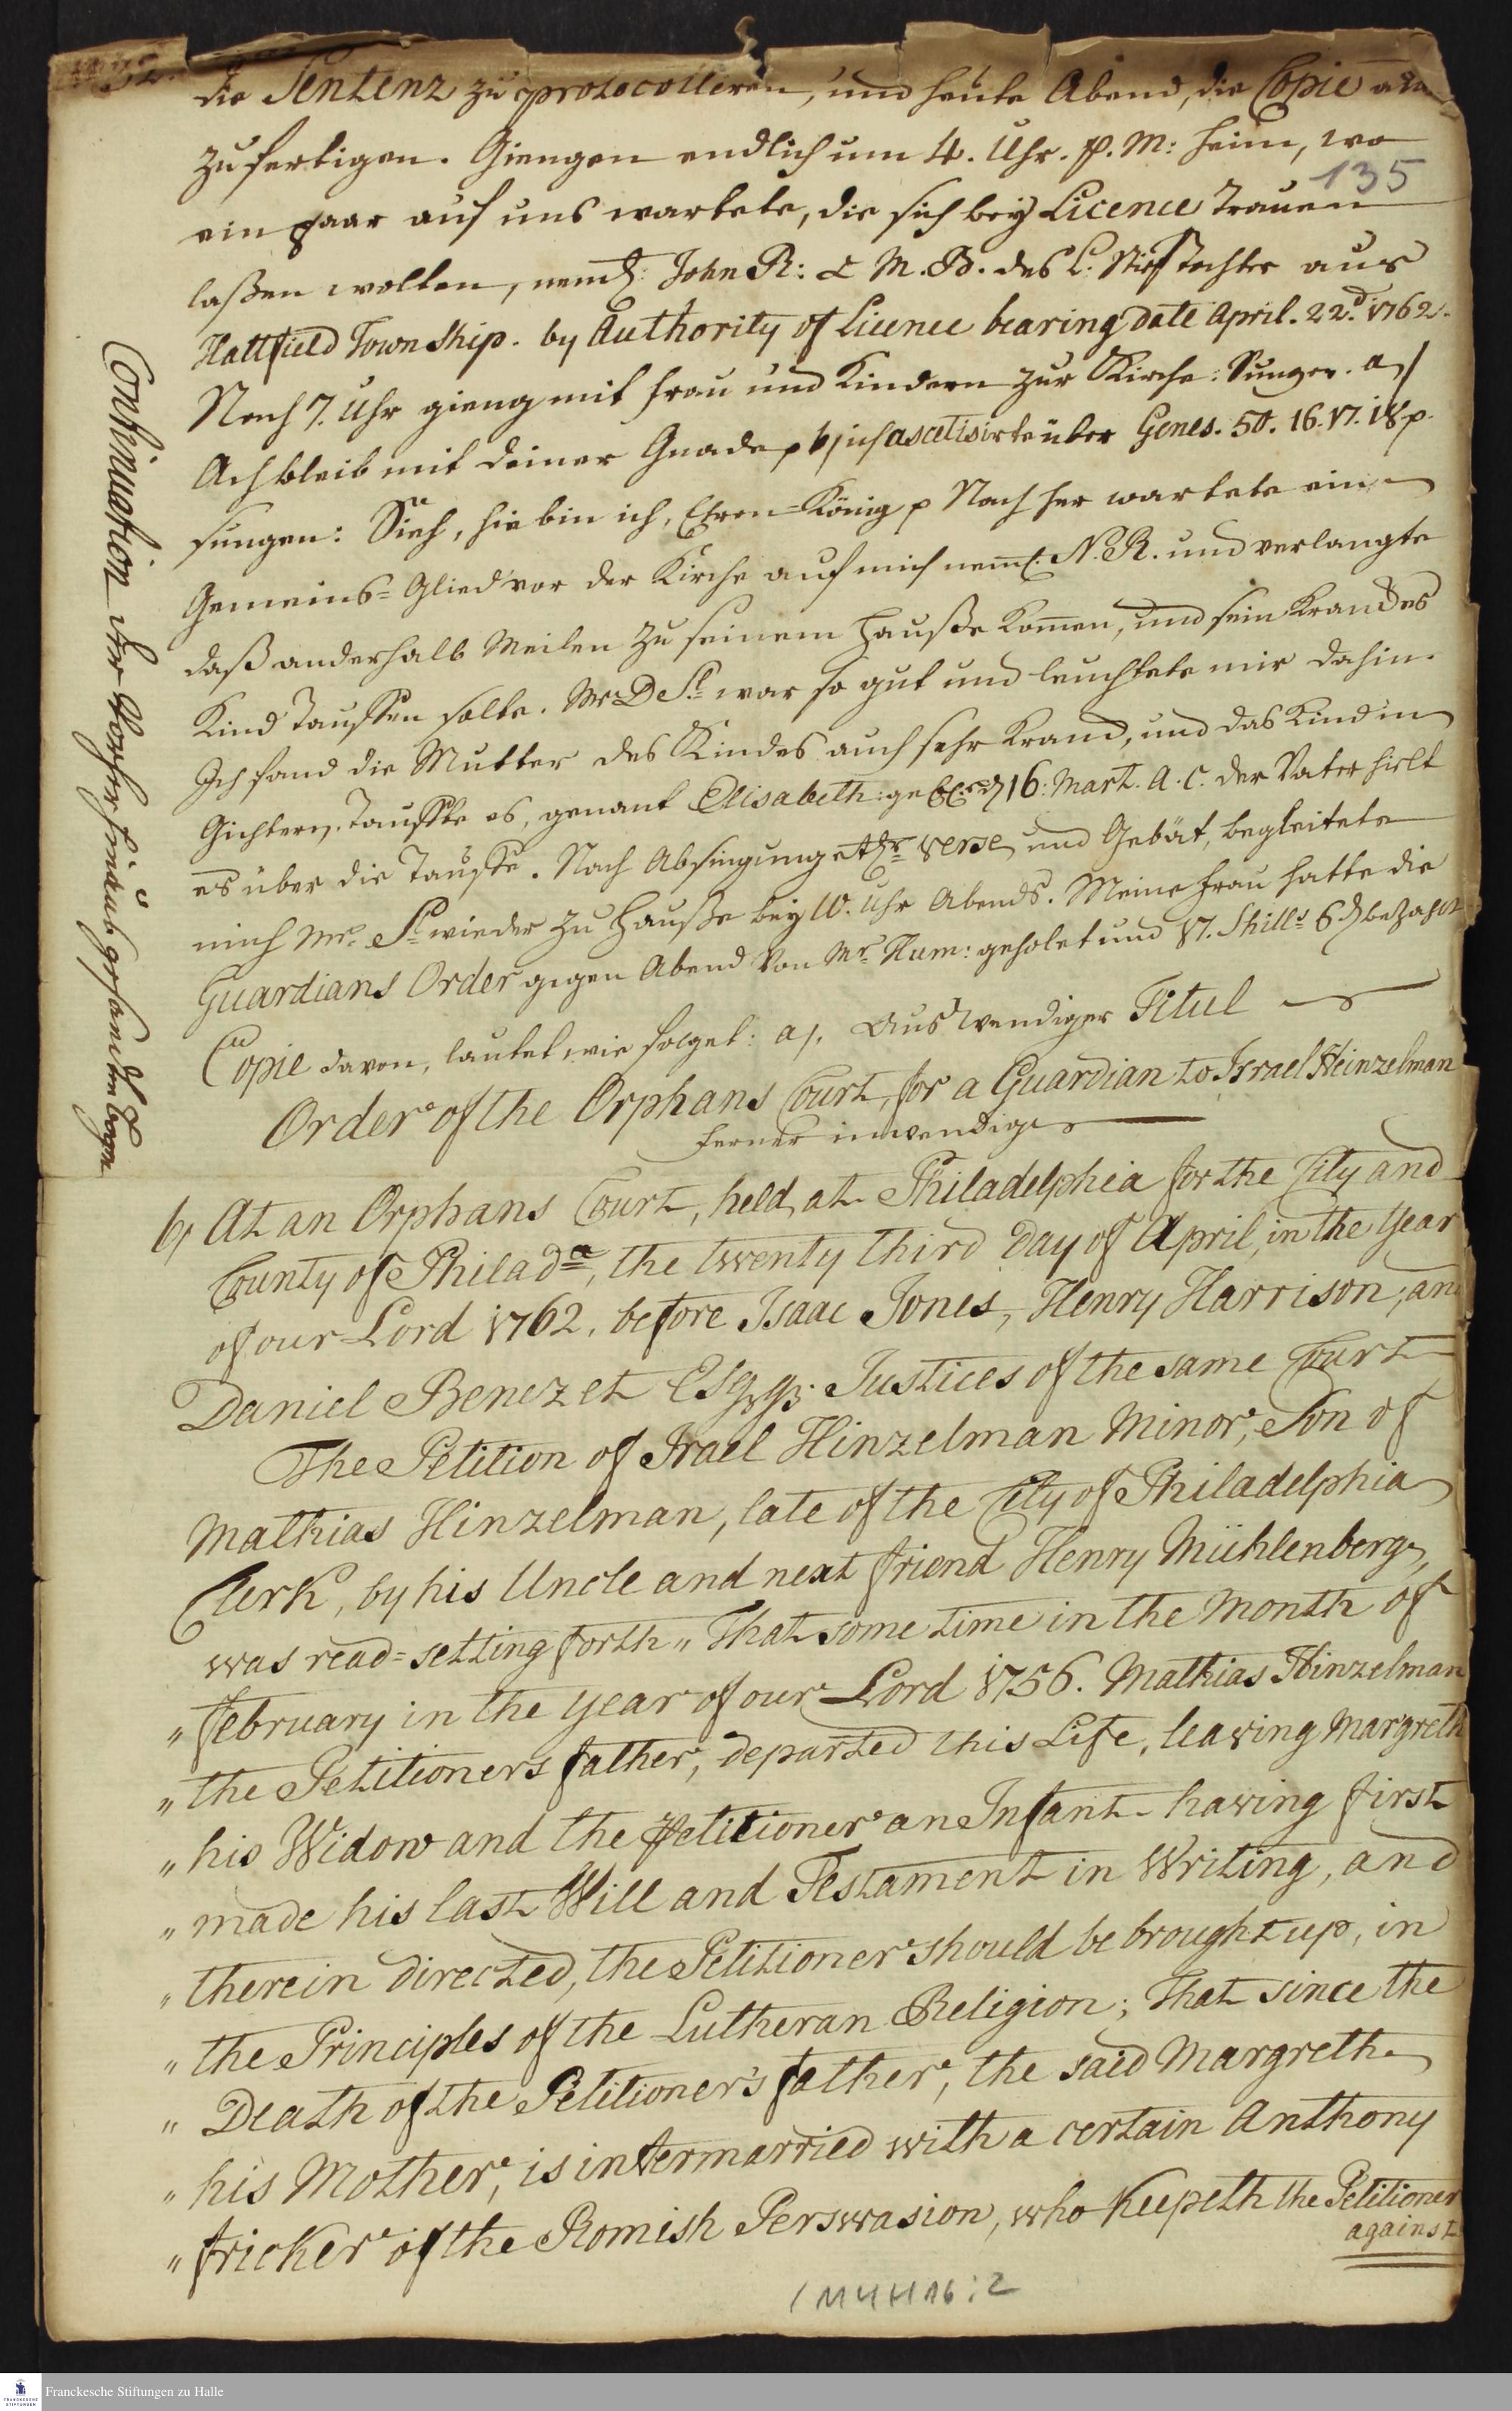 die Sentenz zu protocolleren, und heute Abend, die Copie aus
zufertigen. Giengen endlich um 4. Uhr. p. M: heim, wo
135
ein paar auf uns wartete, die sich bey Licence Trauen
laßen wolten, neml: John R: & M. B. des L. Stief Tochter aus
Hattfield Township. by Authority of Licence bearing date April. 22d. 1762.
Nach 7. Uhr gieng mit Frau und Kindern zur Kirche: Sungen. a)
Ach bleib mit deiner Gnade p b) ich ascetisirte über Genes. 50. 16. 17. 18 p.
sungen: Sieh, hie bin ich, Ehren-König p Nach her wartete ein
Gemeins-Glied vor der Kirche auf mich neml: N. R. und verlangte
daß anderhalb Meilen zu seinem Hauße komen, und sein Krankes
Kind Tauffen solte. Mr D S. war so gut und leuchtete mir dahin.
Ich fand die Mutter des Kindes auch sehr Kranck, und das Kind in
Gichtern, Tauffte es, genant Elisabeth: geb. d 16: Mart. A. C. der Vater hielt
es über die Tauffe. Nach Absingung etl. verse und Gebät, begleitete
mich Mr. S. wieder zu Hauße bey 10. Uhr Abends. Meine Frau hatte die
Guardians Order gegen Abend von Mr Hum: geholet und 17. Shills 6 d bezahlt
Copie davon, lautet wie folget: a). Auswendiger Titul
Order of the Orphans Court, for a Guardian to Israel Heinzelman
ferner inwendig
b) At an Orphans Court, held at Philadelphia for the City and
County of Philada, the twenty third Day of April, in the Year
of our Lord 1762, before Isaac Jones, Henry Harrison, and
Daniel Benezet Esqrs: Justices of the same Court
The Petition of Israel Hinzelman Minor, Son of
Mathias Hinzelman, late of the City of Philadelphia
Clerk, by his Uncle and next friend Henry Mühlenberg,
was read = setting forth „ That some time in the Month of
„ february in the year of our Lord 1756. Mathias Hinzelman
„ the Petitioners father, departed this Life, leaving Margreth
„ his Widow and the Petitioner an Infant - having first
„ made his last Will and Testament in Writing, and
„ therein directed, the Petitioner should be brought up, in
„ the Principles of the Lutheran Religion; That since the
„ Death of the Petitioner's father, the said Margreth
„ his Mother, is intermarried with a certain Anthony
„ fricker of the Romish Perswasion, who keepeth the Petitioner
against
Continuation der vorher hinaus gesandten bogen
1 M 4 H 16 : 2
Franckesche Stiftungen zu Halle